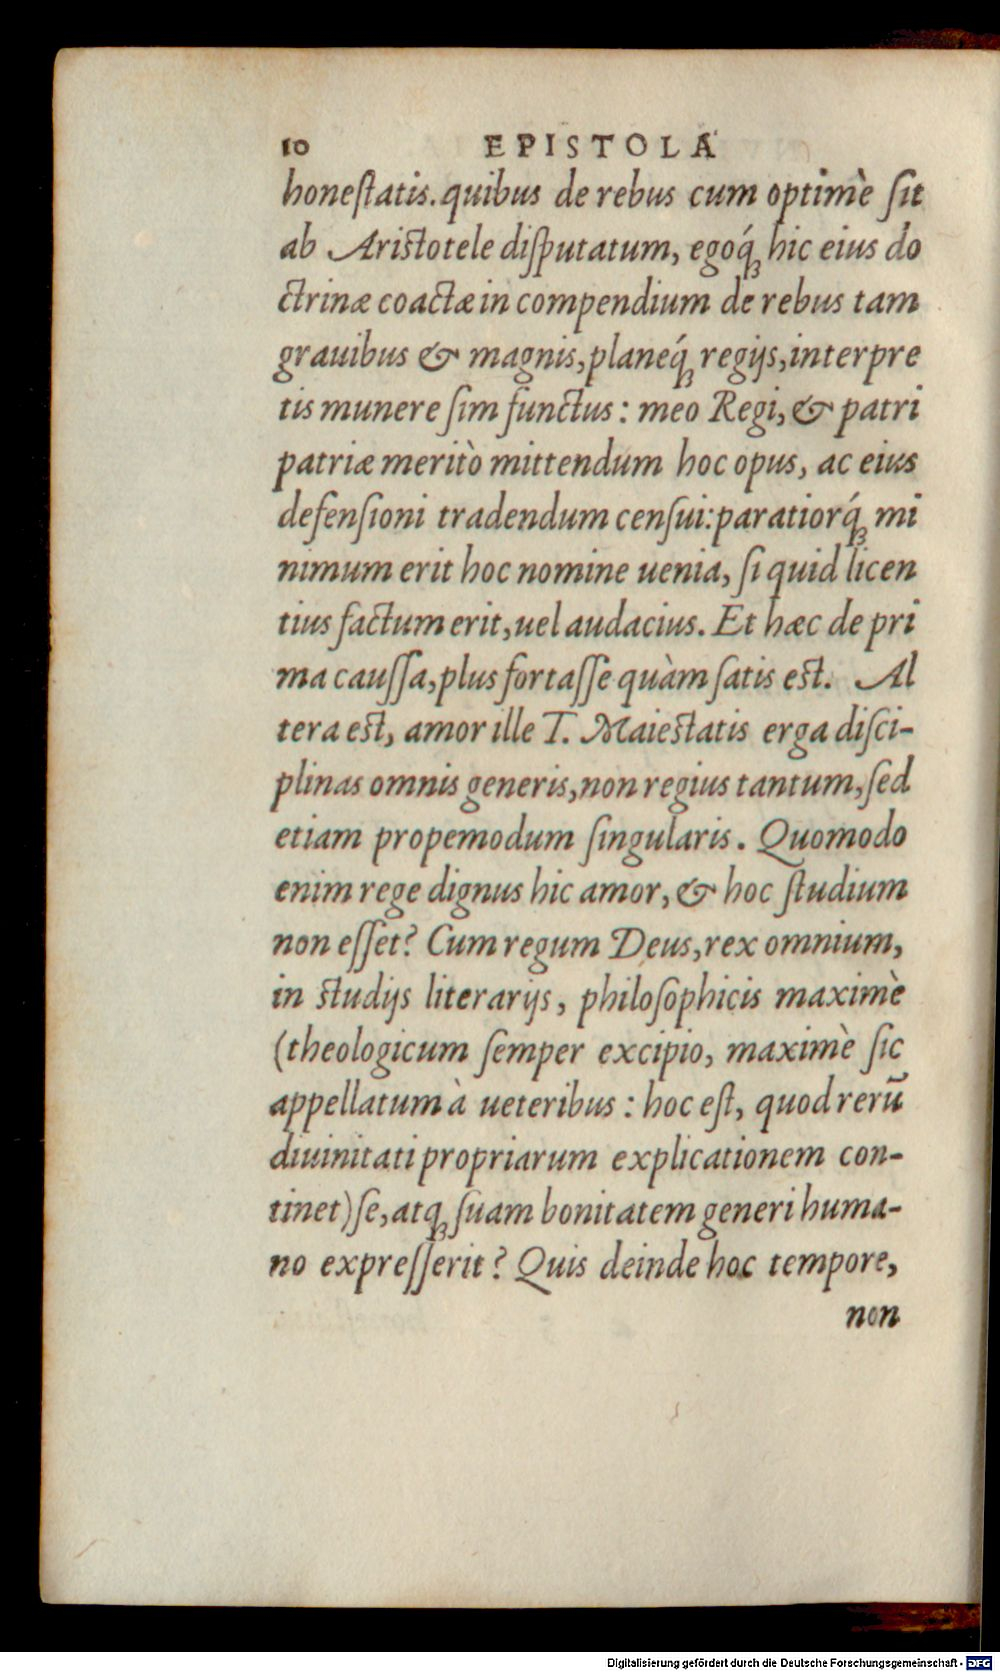 10 EPISTOLA
honeſtatis. quibus de rebus cum optimè ſit
ab Ariſtotele diſputatum, egoq́; hic eius do
ctrinæ coactæ in compendium de rebus tam
grauibus & magnis, planeq́; regijs, interpre
tis munere ſim functus: meo Regi, & patri
patriæ meritò mittendum hoc opus, ac eius
defenſioni tradendum cenſui: paratiorq́; mi
nimum erit hoc nomine uenia, ſi quid licen
tius factum erit, uel audacius. Et hæc de pri
ma cauſſa, plus fortaſſe quàm ſatis eſt. Al
tera eſt, amor ille T. Maieſtatis erga diſci-
plinas omnis generis, non regius tantum, ſed
etiam propemodum ſingularis. Quomodo
enim rege dignus hic amor, & hoc ſtudium
non eſſet? Cum regum Deus, rex omnium,
in ſtudijs literarijs, philoſophicis maximè
(theologicum ſemper excipio, maximè ſic
appellatum à ueteribus: hoc eſt, quod rerū
diuinitati propriarum explicationem con-
tinet) ſe, atq; ſuam bonitatem generi huma-
no expreſſerit? Quis deinde hoc tempore,
non
Digitalisierung gefördert durch die Deutsche Forschungsgemeinschaft - DFG